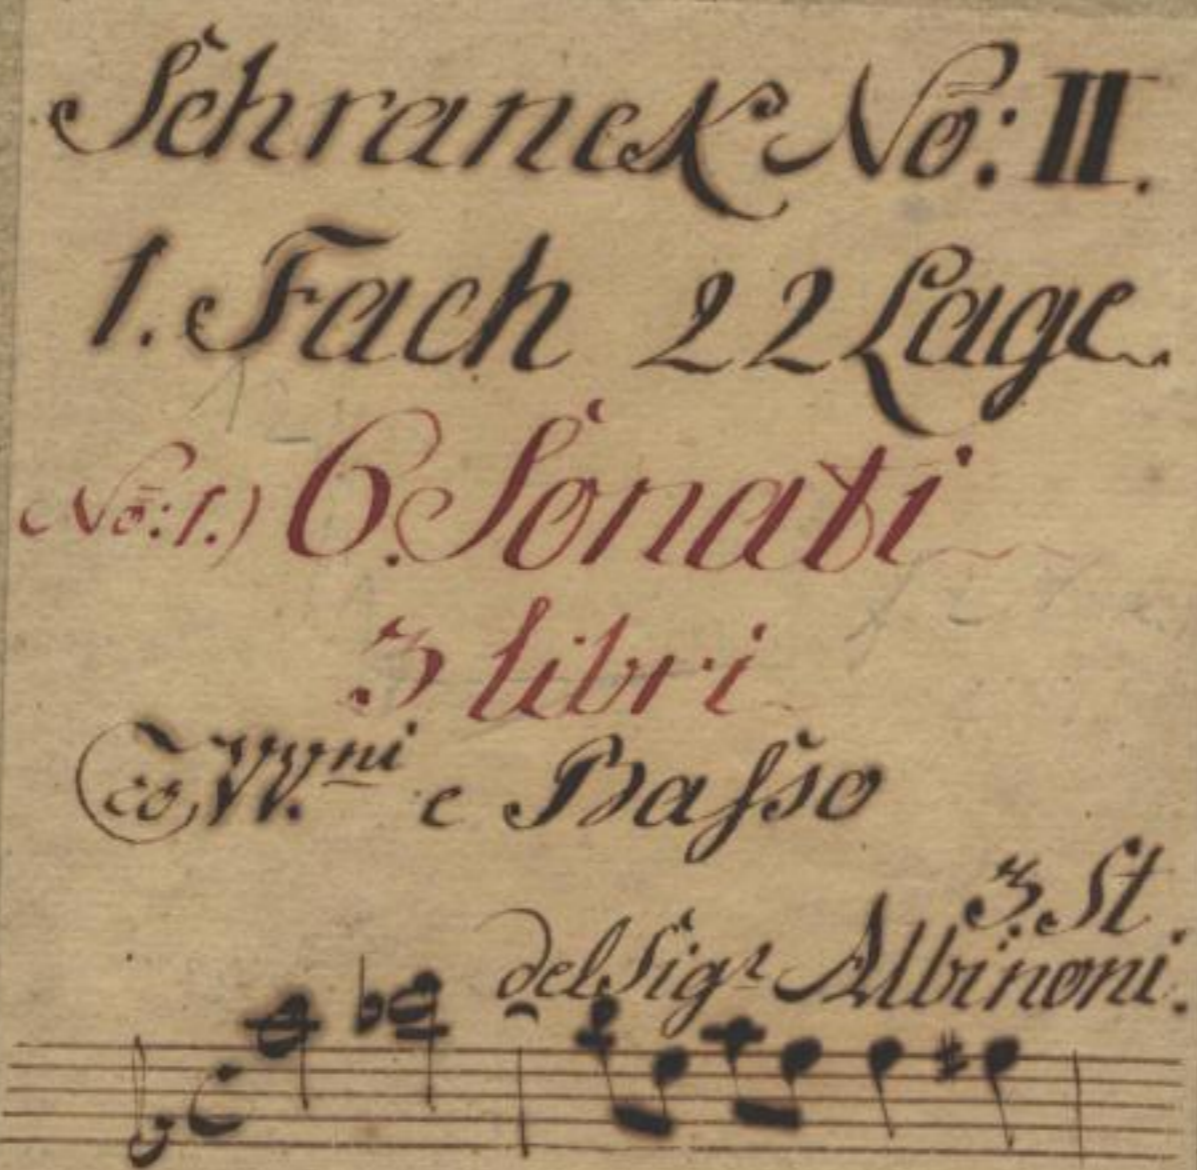 Schranck No: II.
1. Fach 22 Lage.
No: 1.) 6. Sonati
3 libri
co VV.ni e Basso
3. St.
del Sigr Albinoni.